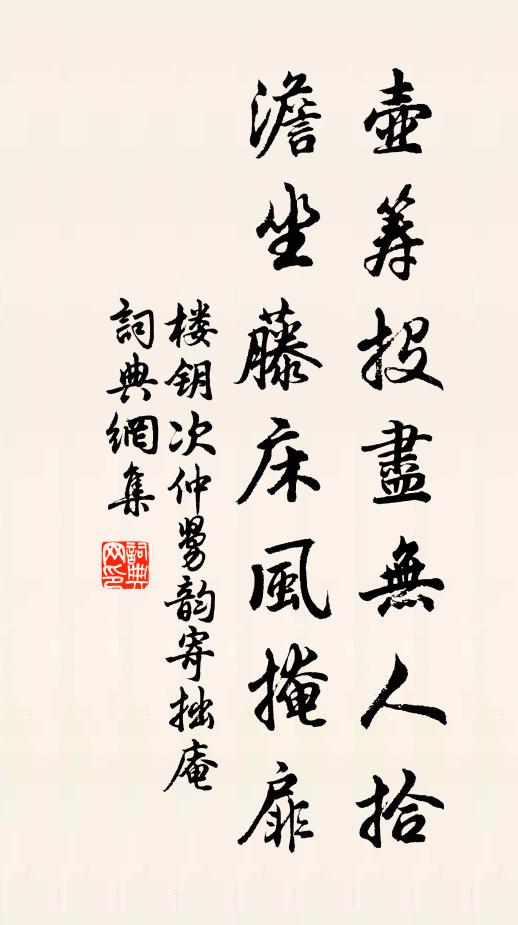 壺筭投盡無人拾
澹坐藤床風掩扉
楼钥次仲舅韵寄拙庵
詞典網集
詞典网印